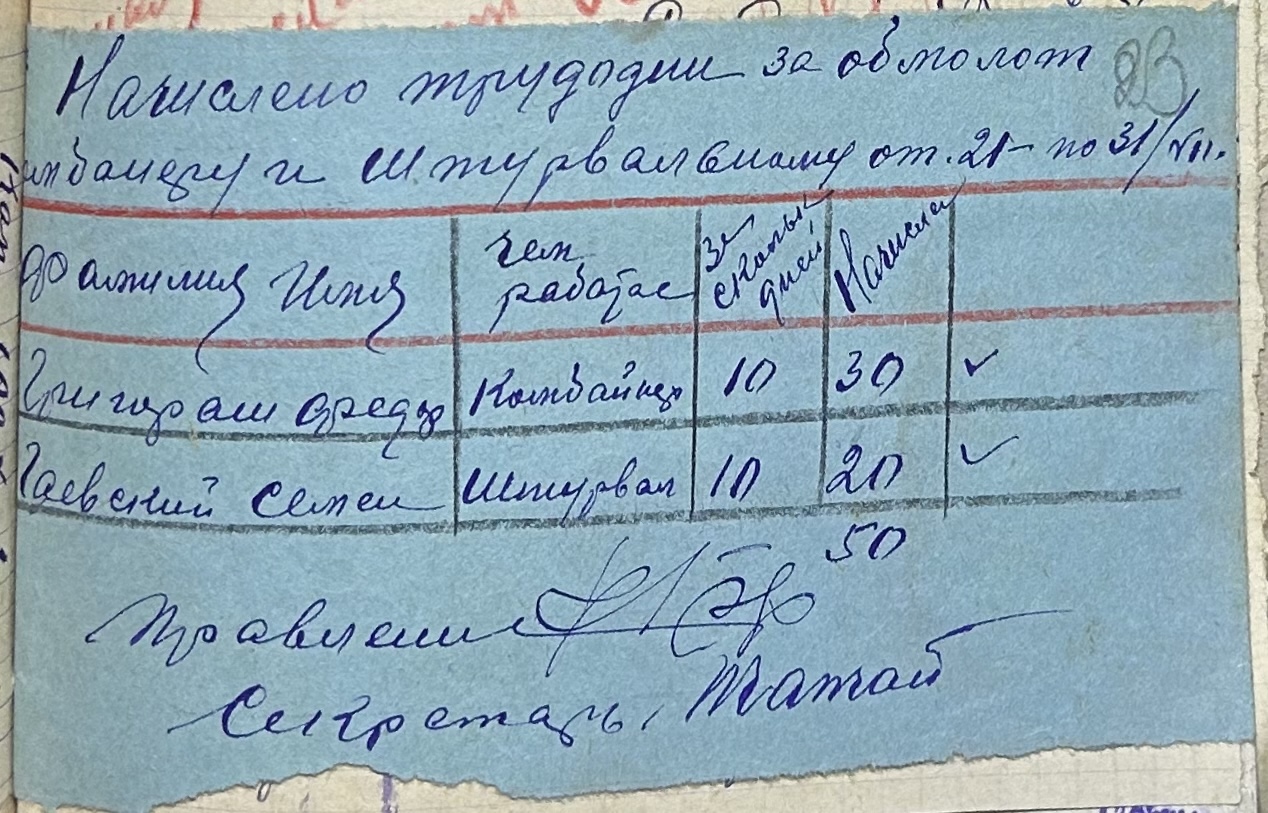 Начислено трудодни за обмолот 23
мбанеру и Штурвальному от. 21- по 31/VII.
Фамилия Имя чем работае За сколько дней Начисле
Григораш Федор Комбайнер 10 30 ✓
Гаевский Семен Штурвал 10 20 ✓
50
Правление
Секретарь,